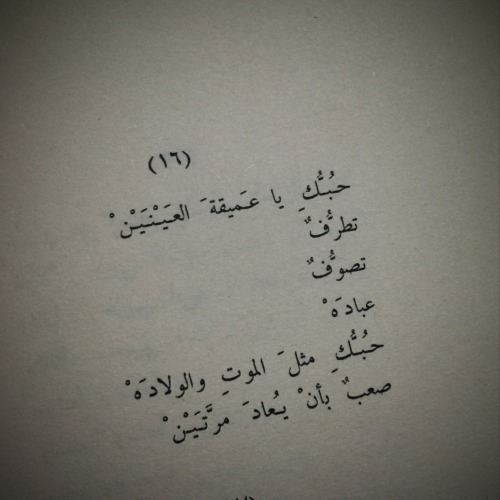 (١٦)
حُبُّكِ يا عَميقةَ العَيْنَيَنْ
تطرُّفٌ
تصوُّفٌ
عبادَهْ
حُبُّكِ مثلَ الموتِ والولادَهْ
صعبٌ بأنْ يُعادَ مرَّتَيَنْ